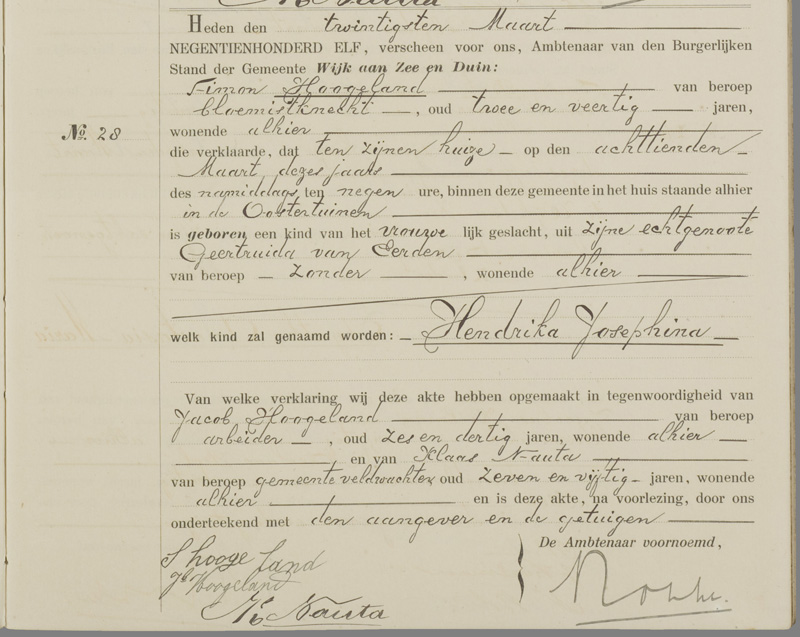 Heden den twintigsten Maart
NEGENTIENHONDERD ELF, verscheen voor ons, Ambtenaar van den Burgerlijken
Stand der Gemeente Wijk aan Zee en Duin:
Simon Hoogeland van beroep
bloemistknecht, oud twee en veertig jaren,
No. 28
wonende alhier
die verklaarde, dat ten zijnen huize op den achttienden
Maart dezes jaars
des namiddags ten negen ure, binnen deze gemeente in het huis staande alhier
in de Oostertuinen
is geboren een kind van het vrouwe lijk geslacht, uit zijne echtgenoote
Geertruida van Eerden
van beroep zonder, wonende alhier
welk kind zal genaamd worden: Hendrika Josephina
Van welke verklaring wij deze akte hebben opgemaakt in tegenwoordigheid van
Jacob Hoogeland van beroep
arbeider, oud zes en dertig jaren, wonende alhier
en van Klaas Nauta
van beroep gemeente veldwachter, oud zeven en vijftig jaren, wonende
alhier en is deze akte, na voorlezing, door ons
onderteekend met den aangever en de getuigen
De Ambtenaar voornoemd,
S hoogeland
Jb Hoogeland
Ks Nauta